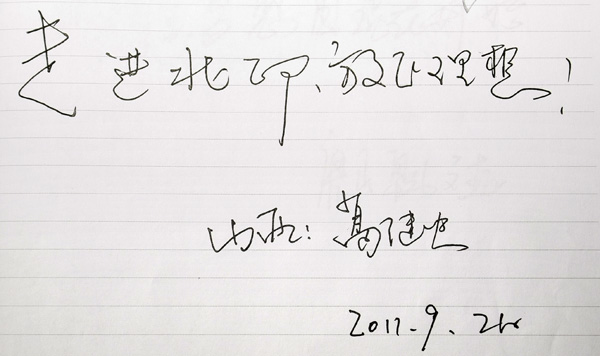 走进北邙、放飞理想!
山西:葛建忠
2011.9.24